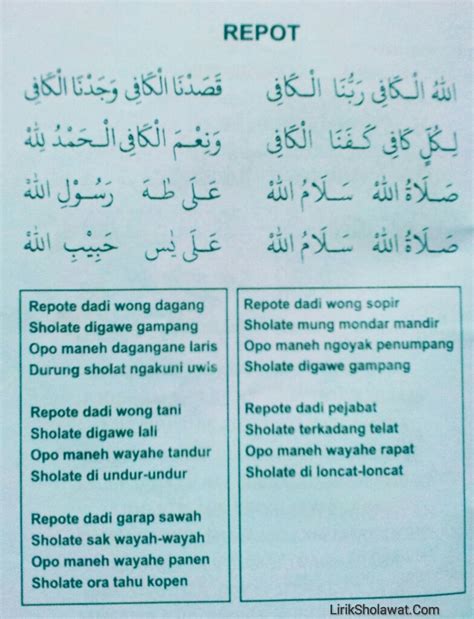 REPOT
اللهُ الْـكَافِى رَبُّنَا الْـكَافِى قَصَدْنَا الْكَافِى وَجَدْنَا الْكَافِى
لِـكُلٍّ كَافِى كَـفَـنَا الْكَافِى وَنِعْـمَ الْكَافِى الْـحَمْدُ لِلّٰهِ
صَـلَاةُ اللهْ سَـلَامُ اللهْ عَـلَى طٰـهَ رَسُـوْلِ اللهْ
صَـلَاةُ اللهْ سَـلَامُ اللهْ عَـلَى يٰس حَبِيْبِ اللهْ
Repote dadi wong dagang
Sholate digawe gampang
Opo maneh dagangane laris
Durung sholat ngakuni uwis
Repote dadi wong tani
Sholate digawe lali
Opo maneh wayahe tandur
Sholate di undur-undur
Repote dadi garap sawah
Sholate sak wayah-wayah
Opo maneh wayahe panen
Sholate ora tahu kopen
Repote dadi wong sopir
Sholate mung mondar mandir
Opo maneh ngoyak penumpang
Sholate digawe gampang
Repote dadi pejabat
Sholate terkadang telat
Opo maneh wayahe rapat
Sholate di loncat-loncat
LirikSholawat.Com